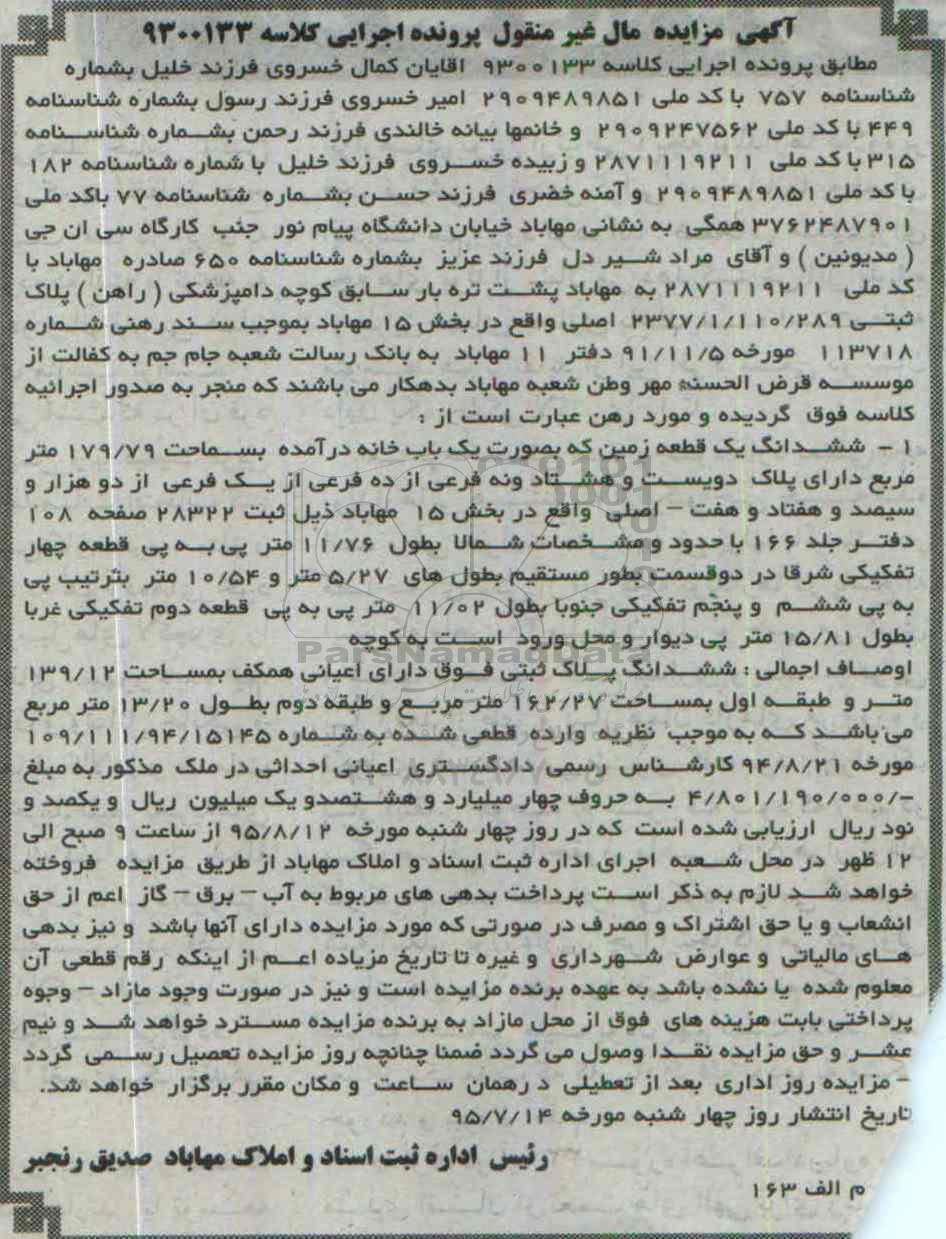 آگهی مزایده مال غیر منقول پرونده اجرایی کلاسه ۹۳۰۰۱۳۳
مطابق پرونده اجرایی کلاسه ۹۳۰۰۱۳۳ اقایان کمال خسروی فرزند خلیل بشماره
شناسنامه ۷۵۷ با کد ملی ۲۹۰۹۴۸۹۸۵۱ امیر خسروی فرزند رسول بشماره شناسنامه
۴۴۹ با کد ملی ۲۹۰۹۲۴۷۵۶۲ و خانمها بیانه خالندی فرزند رحمن بشماره شناسنامه
۳۱۵ با کد ملی ۲۸۷۱۱۱۹۲۱۱ و زبیده خسروی فرزند خلیل با شماره شناسنامه ۱۸۲
با کد ملی ۲۹۰۹۴۸۹۸۵۱ و آمنه خضری فرزند حسن بشماره شناسنامه ۷۷ باکد ملی
۳۷۶۲۴۸۷۹۰۱ همگی به نشانی مهاباد خیابان دانشگاه پیام نور جنب کارگاه سی ان جی
( مدیونین ) و آقای مراد شیر دل فرزند عزیز بشماره شناسنامه ۶۵۰ صادره مهاباد با
کد ملی ۲۸۷۱۱۱۹۲۱۱ به مهاباد پشت تره بار سابق کوچه دامپزشکی ( راهن ) پلاک
ثبتی ۲۳۷۷/۱/۱۱۰/۲۸۹ اصلی واقع در بخش ۱۵ مهاباد بموجب سند رهنی شماره
۱۱۳۷۱۸ مورخه ۹۱/۱۱/۵ دفتر ۱۱ مهاباد به بانک رسالت شعبه جام جم به کفالت از
موسسه قرض الحسنه مهر وطن شعبه مهاباد بدهکار می باشند که منجر به صدور اجرائیه
کلاسه فوق گردیده و مورد رهن عبارت است از :
۱ - ششدانگ یک قطعه زمین که بصورت یک باب خانه درآمده بسماحت ۱۷۹/۷۹ متر
مربع دارای پلاک دویست و هشتاد ونه فرعی از ده فرعی از یک فرعی از دو هزار و
سیصد و هفتاد و هفت – اصلی واقع در بخش ۱۵ مهاباد ذیل ثبت ۲۸۳۲۲ صفحه ۱۰۸
دفتر جلد ۱۶۶ با حدود و مشخصات شمالا بطول ۱۱/۷۶ متر پی به پی قطعه چهار
تفکیکی شرقا در دوقسمت بطور مستقیم بطول های ۵/۲۷ متر و ۱۰/۵۴ متر بترتیب پی
به پی ششم و پنجم تفکیکی جنوبا بطول ۱۱/۰۲ متر پی به پی قطعه دوم تفکیکی غربا
بطول ۱۵/۸۱ متر پی دیوار و محل ورود است به کوچه
اوصاف اجمالی : ششدانگ پلاک ثبتی فوق دارای اعیانی همکف بمساحت ۱۳۹/۱۲
متر و طبقه اول بمساحت ۱۶۲/۲۷ متر مربع و طبقه دوم بطول ۱۳/۲۰ متر مربع
می باشد که به موجب نظریه وارده قطعی شده به شماره ۱۰۹/۱۱۱/۹۴/۱۵۱۴۵
مورخه ۹۴/۸/۲۱ کارشناس رسمی دادگستری اعیانی احداثی در ملک مذکور به مبلغ
-/۴/۸۰۱/۱۹۰/۰۰۰ به حروف چهار میلیارد و هشتصدو یک میلیون ریال و یکصد و
نود ریال ارزیابی شده است که در روز چهار شنبه مورخه ۹۵/۸/۱۲ از ساعت ۹ صبح الی
۱۲ ظهر در محل شعبه اجرای اداره ثبت اسناد و املاک مهاباد از طریق مزایده فروخته
خواهد شد لازم به ذکر است پرداخت بدهی های مربوط به آب – برق – گاز اعم از حق
انشعاب و یا حق اشتراک و مصرف در صورتی که مورد مزایده دارای آنها باشد و نیز بدهی
های مالیاتی و عوارض شهرداری و غیره تا تاریخ مزیاده اعم از اینکه رقم قطعی آن
معلوم شده یا نشده باشد به عهده برنده مزایده است و نیز در صورت وجود مازاد – وجوه
پرداختی بابت هزینه های فوق از محل مازاد به برنده مزایده مسترد خواهد شد و نیم
عشر و حق مزایده نقدا وصول می گردد ضمنا چنانچه روز مزایده تعصیل رسمی گردد
- مزایده روز اداری بعد از تعطیلی د رهمان ساعت و مکان مقرر برگزار خواهد شد.
تاریخ انتشار روز چهار شنبه مورخه ۹۵/۷/۱۴
رئیس اداره ثبت اسناد و املاک مهاباد صدیق رنجبر
م الف ۱۶۳
ParsNamadData